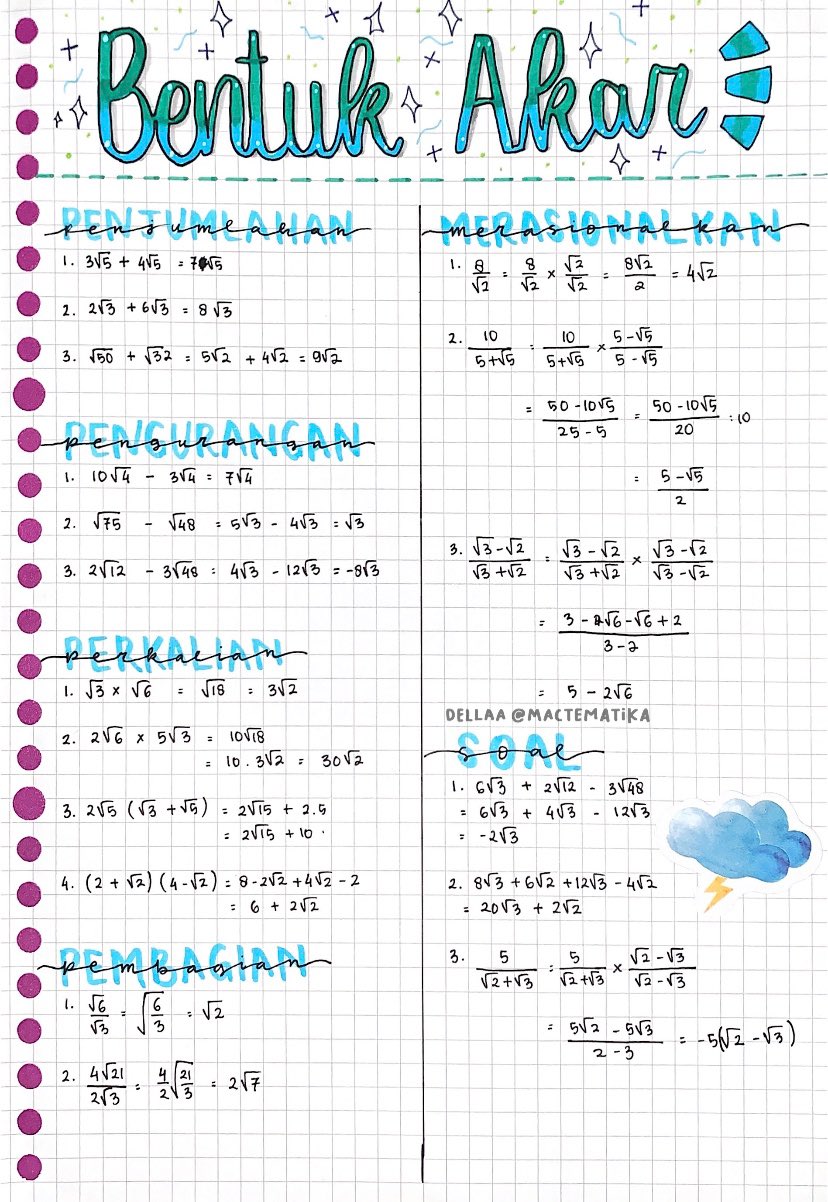 Bentuk Akar
PENJUMLAHAN
penjumlahan
1. 3√5 + 4√5 = 7√5
2. 2√3 + 6√3 = 8√3
3. √50 + √32 = 5√2 + 4√2 = 9√2
PENGURANGAN
pengurangan
1. 10√4 - 3√4 = 7√4
2. √75 - √48 = 5√3 - 4√3 = √3
3. 2√12 - 3√48 = 4√3 - 12√3 = -8√3
PERKALIAN
perkalian
1. √3 × √6 = √18 = 3√2
2. 2√6 × 5√3 = 10√18
= 10 . 3√2 = 30√2
3. 2√5 (√3 + √5) = 2√15 + 2.5
= 2√15 + 10
4. (2 + √2) (4 - √2) = 8 - 2√2 + 4√2 - 2
= 6 + 2√2
PEMBAGIAN
pembagian
1. √6/√3 = √(6/3) = √2
2. 4√21/2√3 = 4/2 √(21/3) = 2√7
MERASIONALKAN
merasionalkan
1. 8/√2 = 8/√2 × √2/√2 = 8√2/2 = 4√2
2. 10/(5+√5) = 10/(5+√5) × (5-√5)/(5-√5)
= (50 - 10√5)/(25 - 5) = (50 - 10√5)/20 : 10
= (5 - √5)/2
3. (√3 - √2)/(√3 + √2) = (√3 - √2)/(√3 + √2) × (√3 - √2)/(√3 - √2)
= (3 - √6 - √6 + 2)/(3 - 2)
= 5 - 2√6
DELLAA @MACTEMATiKA
SOAL
soal
1. 6√3 + 2√12 - 3√48
= 6√3 + 4√3 - 12√3
= -2√3
2. 8√3 + 6√2 + 12√3 - 4√2
= 20√3 + 2√2
3. 5/(√2+√3) = 5/(√2+√3) × (√2 - √3)/(√2 - √3)
= (5√2 - 5√3)/(2 - 3) = -5(√2 - √3)